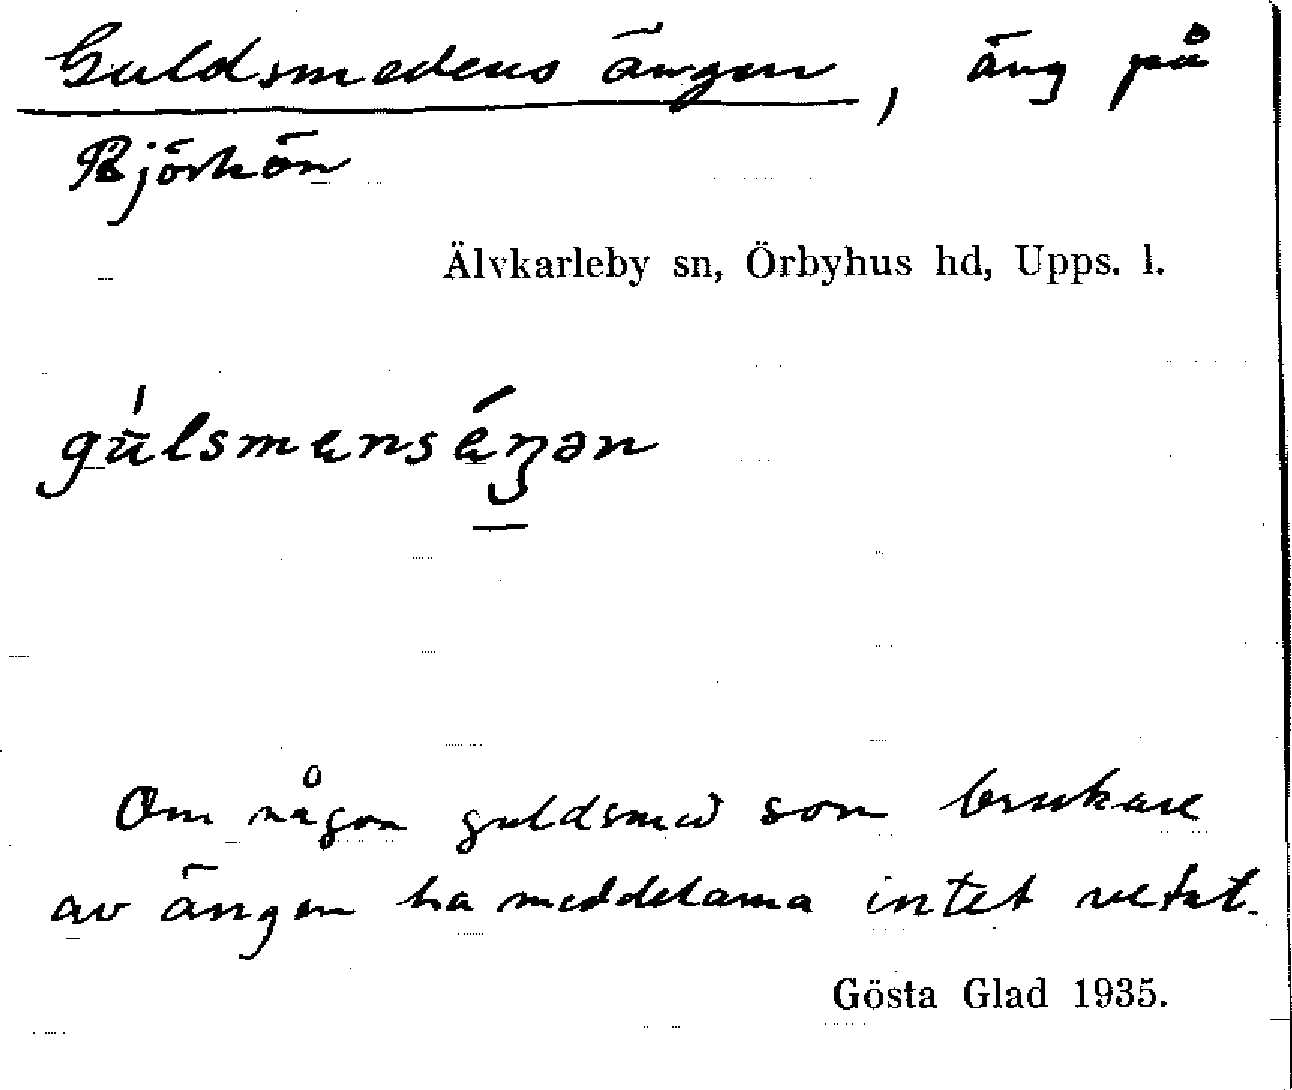 Guldsmedens ängen, äng på
Björkön
Älvkarleby sn, Örbyhus hd, Upps. l.
gùlsmɛnsɛ́ŋən
Om någon guldsmed som brukare
av ängen ha meddelarna intet vetat.
Gösta Glad 1935.